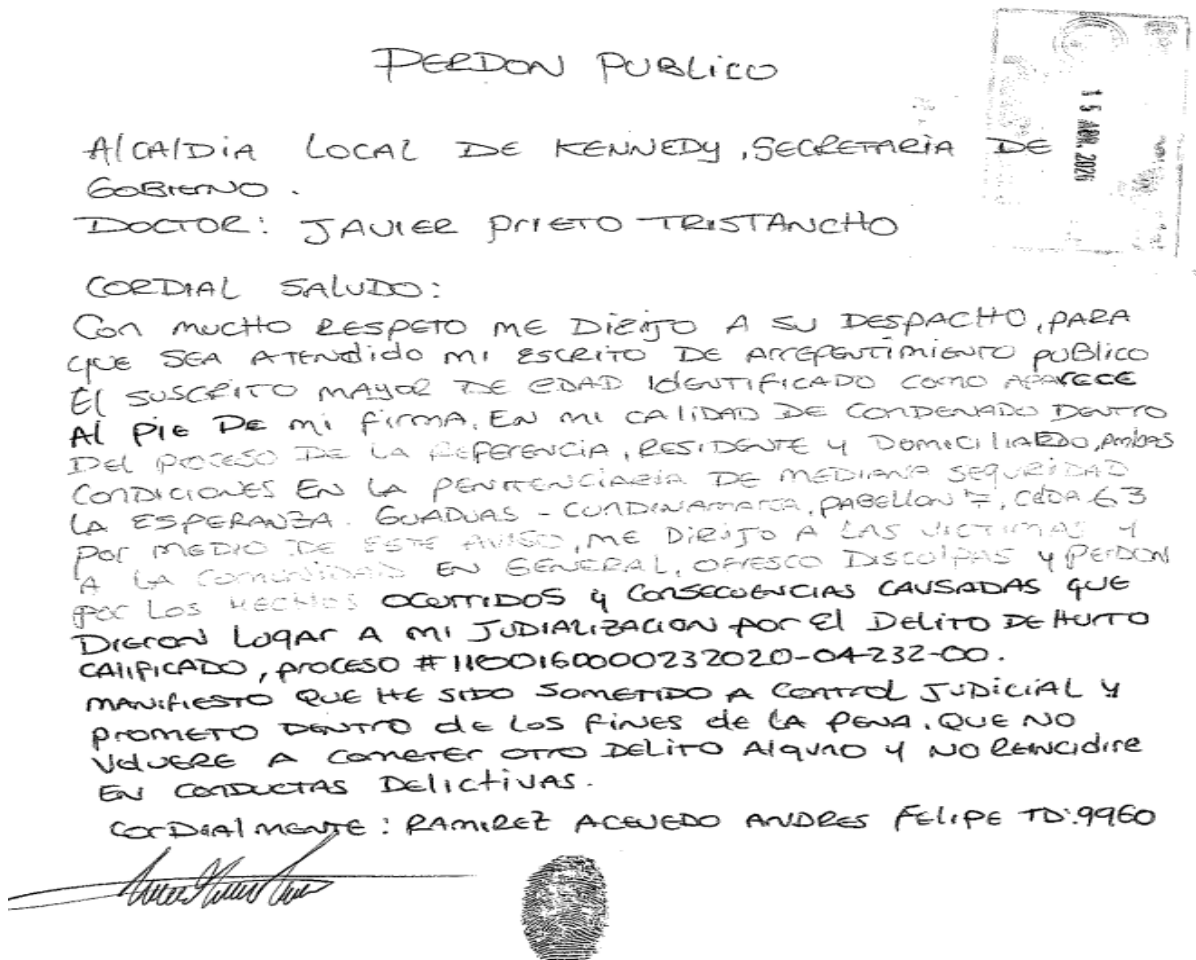 PERDON PUBLICO
15 ABR. 2026
AlCAlDiA LOCAL DE KENNEDY, SECRETARÌA DE
GOBIERNO.
DOCTOR: JAVIER PRIETO TRISTANCHO
CORDIAL SALUDO:
Con mucho RESPETO ME DIRIJO A SU DESPACHO, PARA
QUE SEA ATENdido mi ESCRITO DE ARREPENTIMIENTO PUBlico
El SUSCRITO MAYOR DE EDAD IDENTIFICADO COMO APARECE
Al PiE DE mi FIRMA. EN mi CALIDAD DE CONDENADO DENTRO
DEL PROCESO DE LA REFERENCIA, RESIDENTE Y DOMICILIARDO, AMBAS
CONDICIONES EN LA PENITENCIARIA DE MEDIANA SEGURIDAD
LA ESPERANZA. GUADUAS - CUNDINAMARCA, PABELLON 7, CELDA 63
POR MEDIO DE ESTE AVISO, ME DIRIJO A LAS VICTIMAS Y
A LA COMUNIDAD EN GENERAL, OFRESCO DISCULPAS Y PERDON
POR LOS HECHOS OCURRIDOS Y CONSECUENCIAS CAUSADAS QUE
DIERON LUGAR A MI JUDIALIZACION POR El DELITO DE HURTO
CAlIFICADO, PROCESO #1100160000232020-04232-00.
MANIFIESTO QUE HE SIDO SOMETIDO A CONTROl JUDICIAL Y
PROMETO DENTRO dE LOS FINES dE LA PENA. QUE NO
VOLVERE A COMETER OTRO DELITO AlGUNO Y NO REINCIDIRE
EN CONDUCTAS DElICTIVAS.
CORDIAlMENTE: RAMIREZ ACEVEDO ANDRES FELIPE TD:9960